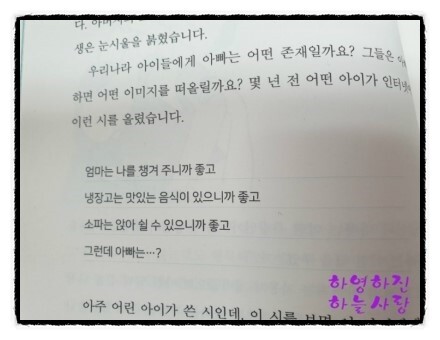 생은 눈시울을 붉혔습니다.
우리나라 아이들에게 아빠는 어떤 존재일까요? 그들은
하면 어떤 이미지를 떠올릴까요? 몇 년 전 어떤 아이가
이런 시를 올렸습니다.
엄마는 나를 챙겨 주니까 좋고
냉장고는 맛있는 음식이 있으니까 좋고
소파는 앉아 쉴 수 있으니까 좋고
그런데 아빠는…?
하영하진
하늘사랑
아주 어린 아이가 쓴 시인데, 이 시를 보면